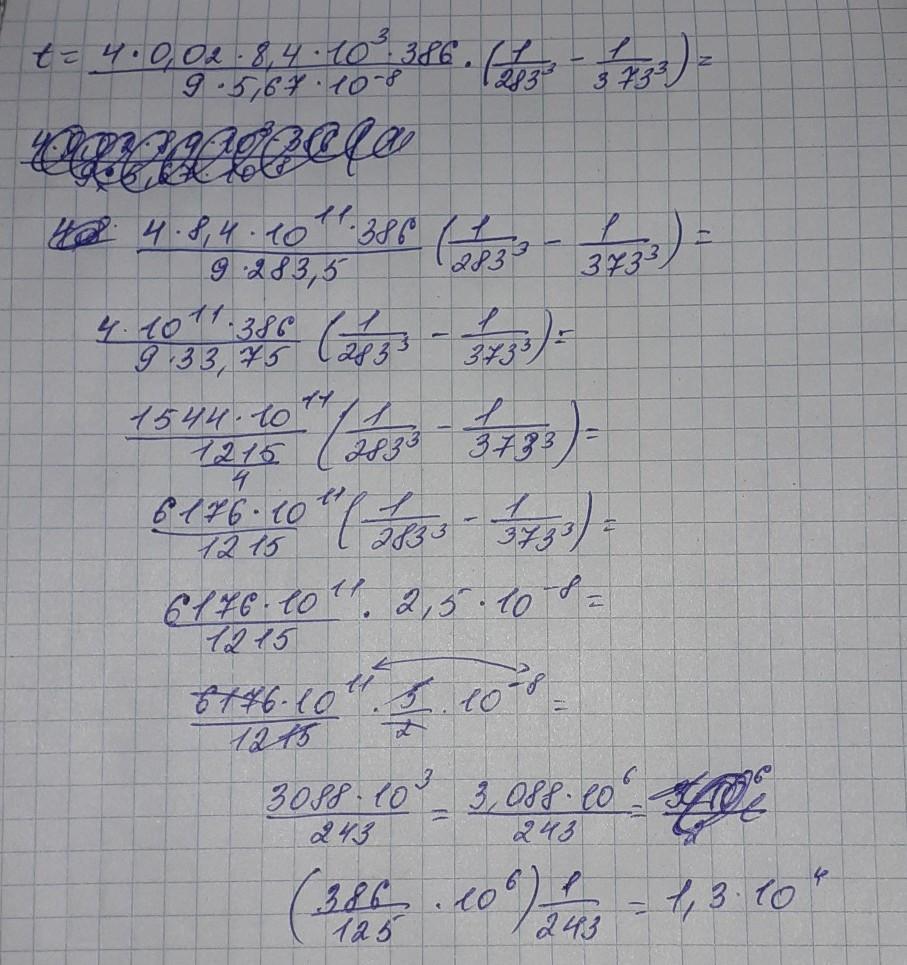 t = (4·0,02·8,4·10³·386)/(9·5,67·10⁻⁸) · (1/283³ − 1/373³) =
(4·8,4·10¹¹·386)/(9·283,5) (1/283³ − 1/373³) =
(4·10¹¹·386)/(9·33,75) (1/283³ − 1/373³) =
(1544·10¹¹)/(1215/4) (1/283³ − 1/373³) =
(6176·10¹¹)/1215 (1/283³ − 1/373³) =
(6176·10¹¹)/1215 · 2,5·10⁻⁸ =
(6176·10¹¹)/1215 · 5/2 · 10⁻⁸ =
(3088·10³)/243 = (3,088·10⁶)/243 =
(386/125 · 10⁶) 1/243 = 1,3·10⁴